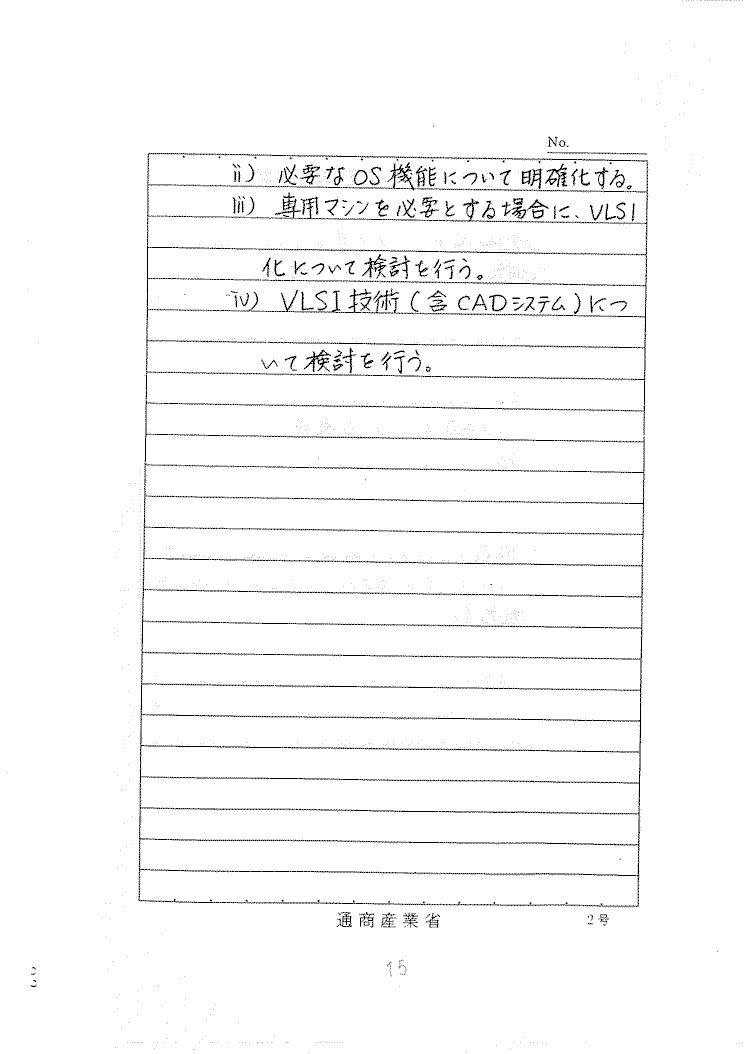 No.
ii) 必要なOS機能について明確化する。
iii) 専用マシンを必要とする場合に、VLSI
化について検討を行う。
iv) VLSI技術(含CADシステム)につ
いて検討を行う。
通商産業省 2号
15